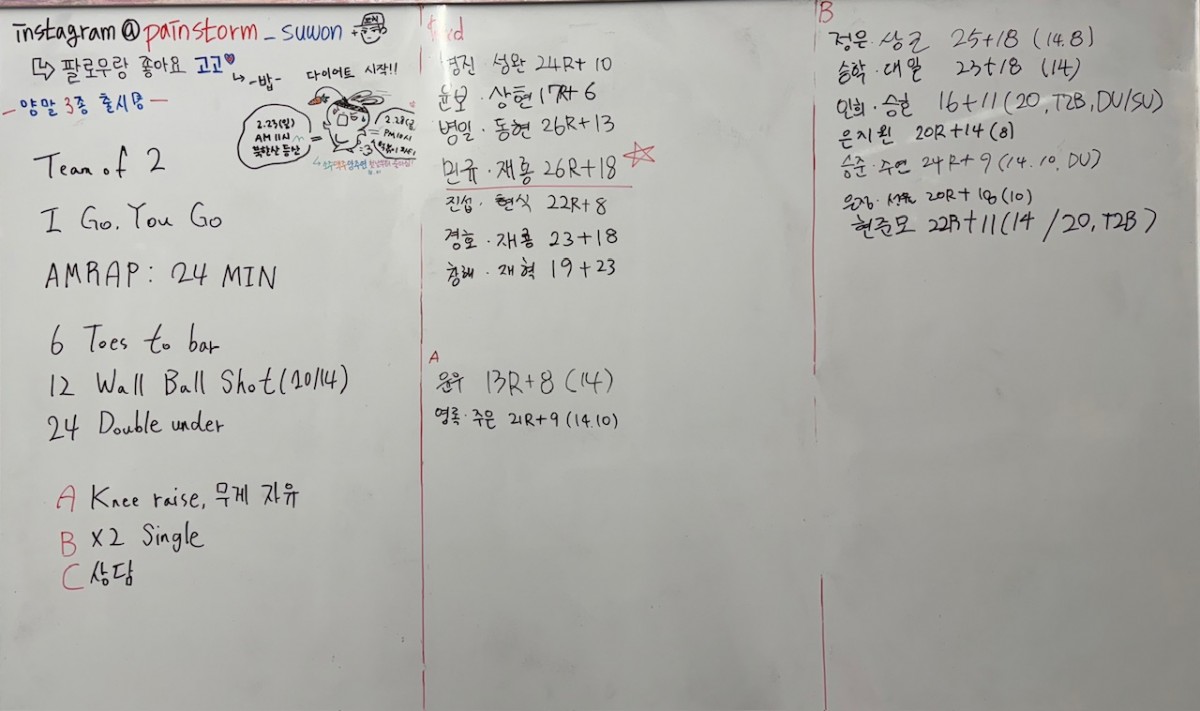 instagram@painstorm_suwon
팔로우랑 좋아요 고고
-밥-
다이어트 시작!!
- 양말 3종 출시 -
2.23(일)
AM 11시
북한산 등산
2.28(금)
PM 10시
Team of 2
I Go, You Go
AMRAP: 24 MIN
6 Toes to bar
12 Wall Ball Shot(20/14)
24 Double under
A Knee raise, 무게 자유
B x2 Single
C 상담
경진 성완 24R+10
윤보·상현 17+6
병일·동현 26R+13
민규·재홍 26R+18
진섭·현식 22R+8
경호·재룡 23+18
창해·재혁 19+23
A
윤우 13R+8(14)
영록·주은 21R+9(14.10)
B
정은·상근 25+18 (14.8)
승학·대일 23+18 (14)
인희·승현 16+11(20,T2B,DU/SU)
은지원 20R+14(8)
승준·주연 24R+9(14.10,DU)
20R+18(10)
현준모 22R+11(14/20,T2B)